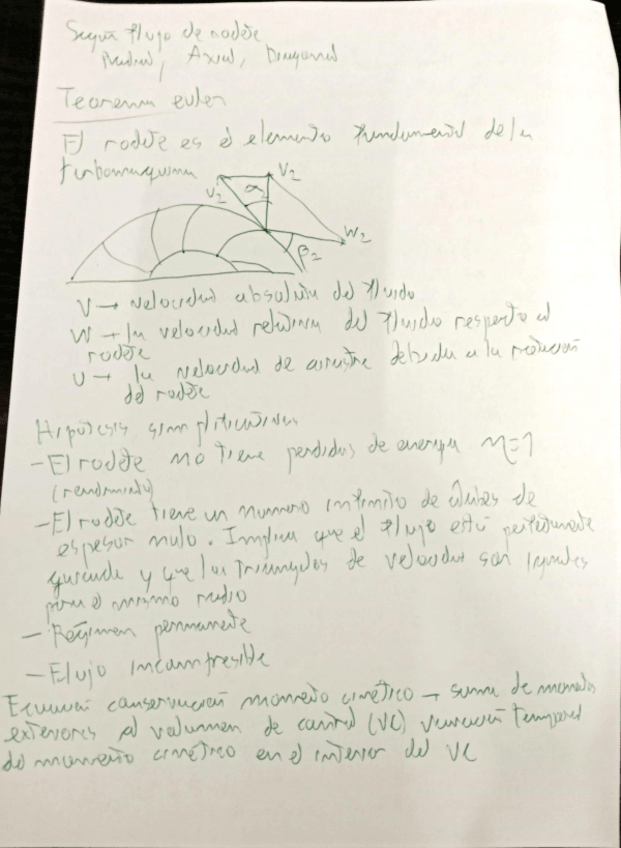 Según flujo de rodete
Radial, Axial, Diagonal
Teorema euler
El rodete es el elemento fundamental de la
turbomaquina
U2 α2 V2
W2
β2
V → velocidad absoluta del fluido
W → la velocidad relativa del fluido respecto al
rodete
U → la velocidad de arrastre debida a la rotación
del rodete
Hipótesis simplificativas
- El rodete no tiene perdidas de energía η=1
(rendimiento)
- El rodete tiene un numero infinito de álabes de
espesor nulo. Implica que el flujo está perfectamente
guiado y que los triangulos de velocidad son iguales
para el mismo radio
- Régimen permanente
- Flujo incompresible
Ecuación conservación momento cinético → suma de momentos
exteriores al volumen de control (VC) variación temporal
del momento cinético en el interior del VC